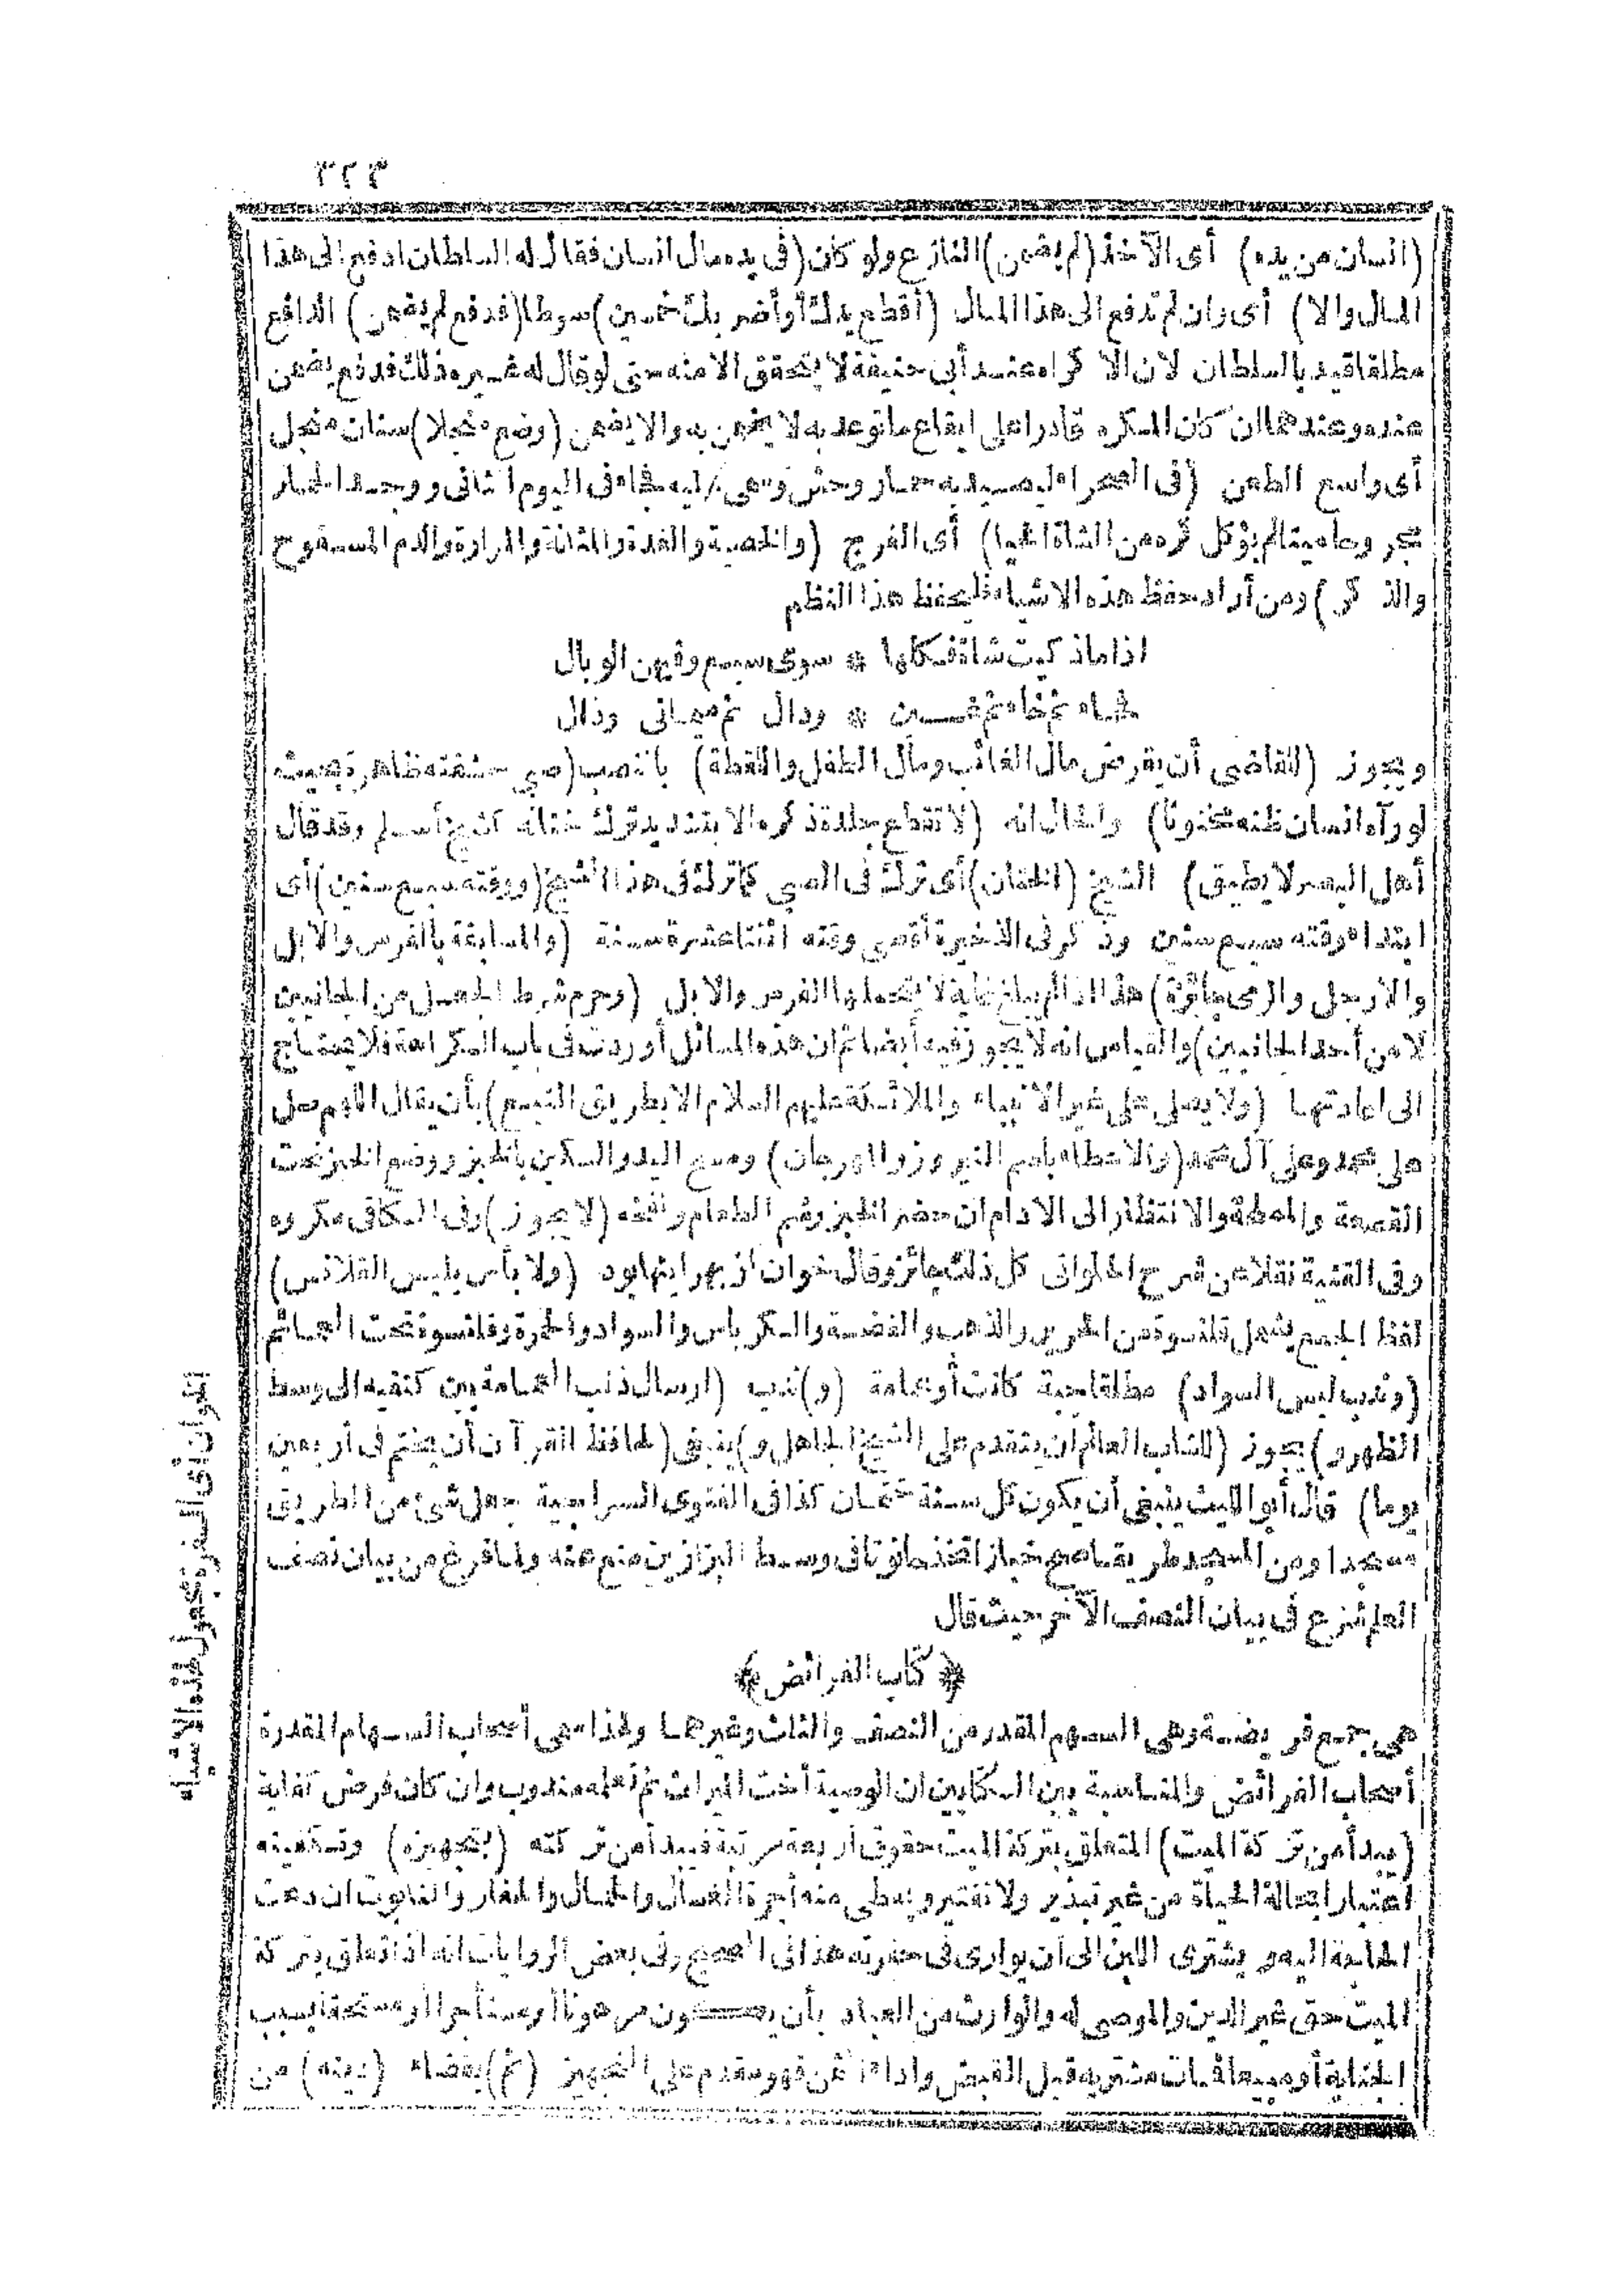 ٣٢٣
(انسان من يده) أى الآخذ (لم يضمن) النازع ولو كان (فى يده مال انسان فقال له السلطان ادفع الى هذا
المال والا) أى وان لم تدفع الى هذا المال (أقطع يدك أو أضر بك خمسين) سوطا (فدفع لم يضمن) الدافع
مطلقا قيد بالسلطان لان الا كراه عند أبى حنيفة لا يتحقق الا منه حتى لو قال له غيره ذلك فدفع يضمن
عنده وعندهما ان كان المكره قادرا على ايقاع ما توعد به لا يضمن به والا يضمن (وضع منجلا) سنان منجل
أى واسع الطعن (فى الصحراء ليصيد به حمار وحش وسمى عليه فجاء فى اليوم الثانى ووجد الحمار
مجروحا ميتا لم يؤكل كره من الشاة الحيا) أى الفرج (والخصية والغدة والمثانة والمرارة والدم المسفوح
والذ كر) ومن أراد حفظ هذه الاشياء فليحفظ هذا النظم
اذا ما ذكيت شاة فكلها * سوى سبع وفيهن الوبال
فحاء ثم خاء ثم غين * ودال ثم ميمان وذال
ويجوز (للقاضى أن يقرض مال الغائب ومال الطفل واللقطة) بالنصب (صبى حشفته ظاهرة بحيث
لو رآه انسان ظنه مختونا) والحال انه (لا تقطع جلدة ذكره الا بتشديد ترك ختانه كشيخ أسلم وقد قال
أهل البصر لا يطيق) الشيخ (الختان) أى ترك فى الصبى كما ترك فى هذا الشيخ (ووقته سبع سنين) أى
ابتداء وقته سبع سنين وذ كر فى الذخيرة أقصى وقته اثنتا عشرة سنة (والمسابقة بالفرس والابل
والارجل والرمى جائزة) هذا اذا لم يبلغ غاية لا يتحملها الفرس والابل (وحرم شرط الجعل من الجانبين
لا من أحد الجانبين) والقياس انه لا يجوز فيه أيضا ثم ان هذه المسائل أوردت فى باب الكراهة فلا يحتاج
الى اعادتها (ولا يصلى على غير الانبياء والملائكة عليهم السلام الا بطريق التبع) بأن يقال اللهم صل
على محمد وعلى آل محمد (والاعطاء باسم النيروز والمهرجان) ومسح اليد والسكين بالخبز ووضع الخبز تحت
القصعة والمملحة والانتظار الى الادام ان حضر الخبز وشم الطعام ونفخه (لا يجوز) وفى الكافى مكروه
وفى القنية نقلا عن شرح الحلوانى كل ذلك جائز وقال خوان از بهر اينها بود (ولا بأس بلبس القلانس)
لفظ الجمع يشمل قلنسوة من الحرير والذهب والفضة والكرباس والسواد والحمرة وقلنسوة تحت العمائم
(وندب لبس السواد) مطلقا جبة كانت أو عمامة (و) ندب (ارسال ذنب العمامة بين كتفيه الى وسط
الظهر و) يجوز (للشاب العالم ان يتقدم على الشيخ الجاهل و) ينبغى (لحافظ القرآن أن يختم فى أربعين
يوما) قال أبو الليث ينبغى أن يكون كل سنة ختمان كذا فى الفتوى السراجية جعل شئ من الطريق
مسجدا ومن المسجد طريقا صح خباز اتخذ حانوتا فى وسط البزازين منع عنه ولما فرغ من بيان نصف
العلم شرع فى بيان النصف الآخر حيث قال
﴿كتاب الفرائض﴾
هى جمع فريضة وهى السهم المقدر من النصف والثلث وغيرهما ولهذا سمى أصحاب السهام المقدرة
أصحاب الفرائض والمناسبة بين الكتابين ان الوصية أخت الميراث ثم تعلمه مندوب وان كان فرض كفاية
(يبدأ من تركة الميت) المتعلق بتركة الميت حقوق أربعة مرتبة فيبدأ من تركته (بتجهيزه) وتكفينه
اعتبارا بحالة الحياة من غير تبذير ولا تقتير ويعطى منه أجرة الغسال والحمال والحفار والتابوت ان دعت
الحاجة اليه ويشترى اللبن الى أن يوارى فى حفرته هذا فى الصحيح وفى بعض الروايات انه اذا تعلق بتركة
الميت حق غير الدين والموصى له والوارث من العباد بأن يكون مرهونا أو مستأجرا أو مستحقا بسبب
الجناية أو مبيعا فمات مشتريه قبل القبض واداء الثمن فهو مقدم على التجهيز (ثم) بقضاء (دينه) من
الخوان أى السفرة معمول لهذه الاشياء